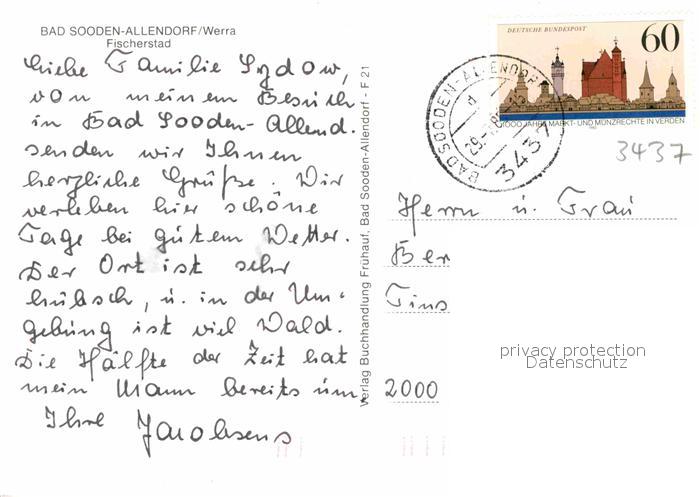 BAD SOODEN-ALLENDORF/Werra
Fischerstad
Liebe Familie Sydow,
von meinem Besuch
in Bad Sooden-Allend.
senden wir Ihnen
herzliche Grüße. Wir
verleben hier schöne
Tage bei gutem Wetter.
Der Ort ist sehr
hübsch, u. in der Um-
gebung ist viel Wald.
Die Hälfte der Zeit hat
mein Mann bereits um.
Ihre Jacobsens
Verlag Buchhandlung Frühauf, Bad Sooden-Allendorf - F 21
DEUTSCHE BUNDESPOST
60
1000 JAHRE MARKT- UND MÜNZRECHTE IN VERDEN
BAD SOODEN-ALLENDORF
3437
3437
Herrn u. Frau
Ber
Tins
2000
privacy protection
Datenschutz